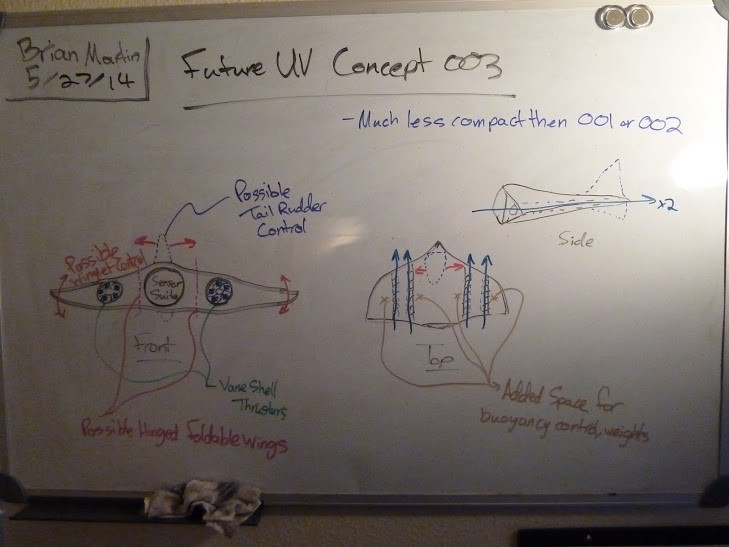 Brian Martin
5/27/14
Future UV Concept 003
-Much less compact then 001 or 002
Possible
Tail Rudder
Control
x2
Side
Possible
Winglet Control
Sensor
Suite
Front
Top
Vane Shell
Thrusters
Possible Hinged Foldable Wings
Added Space for
buoyancy control, weights